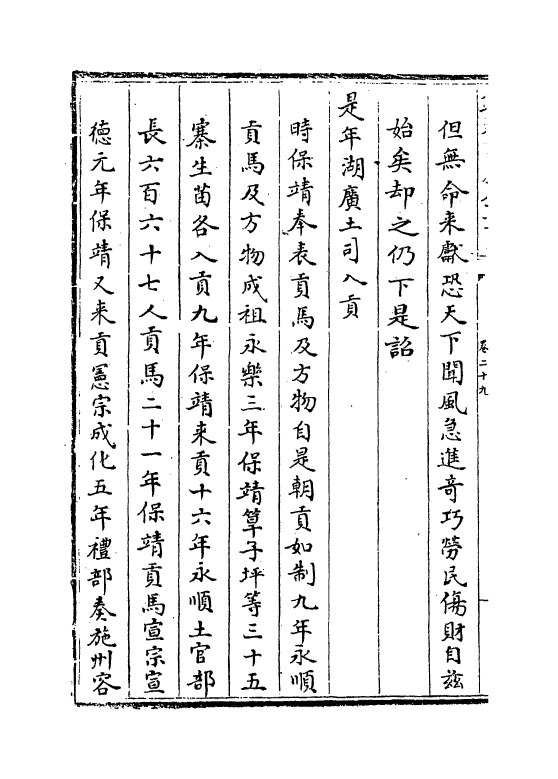 卷二十九
但無命来獻恐天下聞風急進竒巧勞民傷財自兹
始矣却之仍下是詔
是年湖廣土司入貢
時保靖奉表貢馬及方物自是朝貢如制九年永順
貢馬及方物成祖永樂三年保靖筸子坪等三十五
寨生苗各入貢九年保靖来貢十六年永順土官部
長六百六十七人貢馬二十一年保靖貢馬宣宗宣
徳元年保靖又来貢憲宗成化五年禮部奏施州容